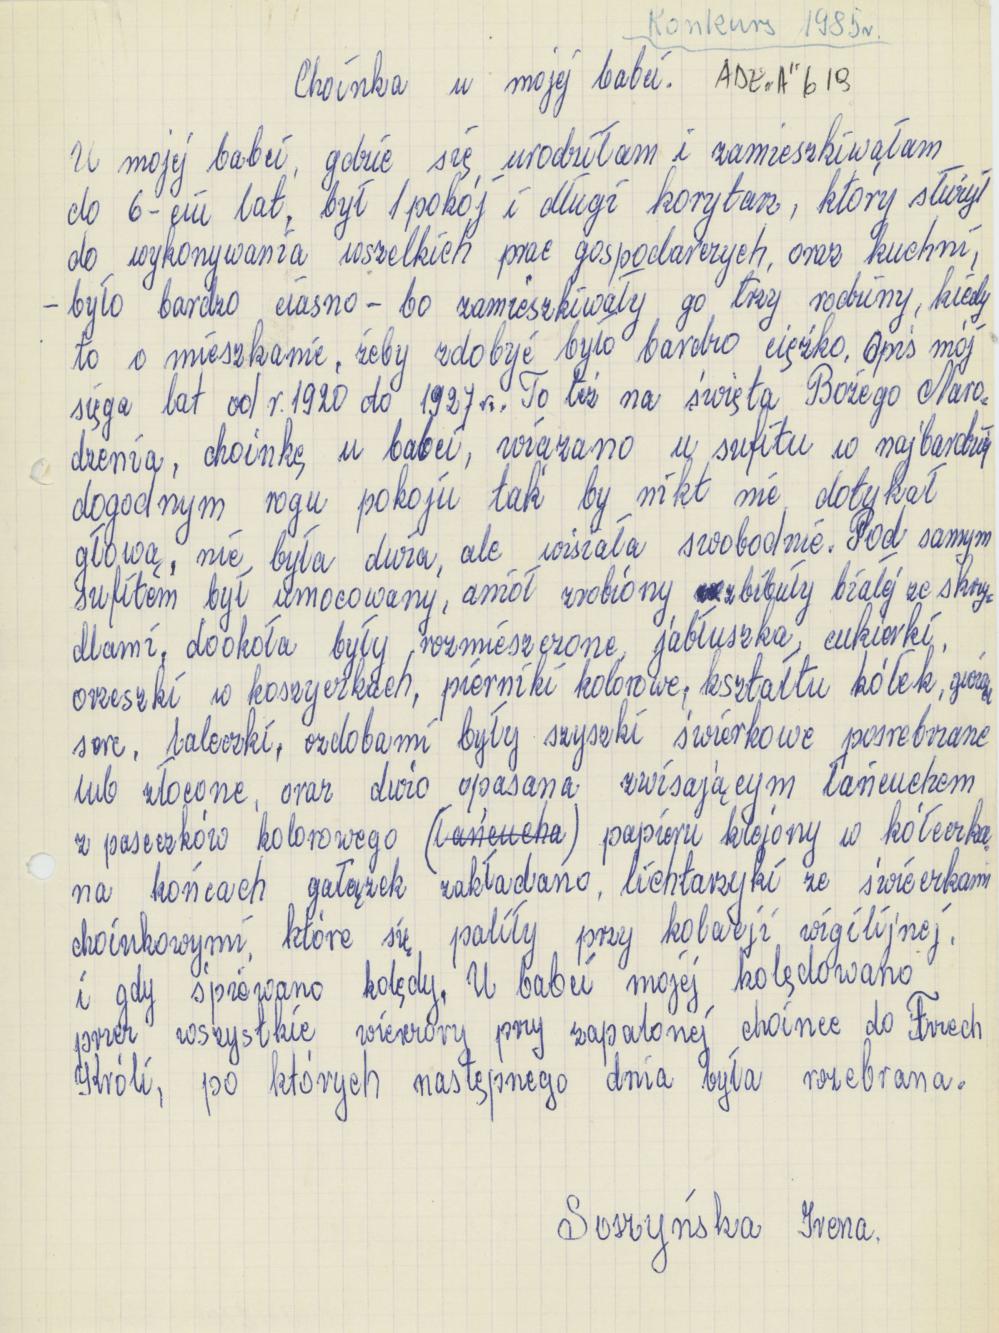 Konkurs 1985r.
Choinka u mojej babci. ADE "A" 619
U mojej babci, gdzie się urodziłam i zamieszkiwałam
do 6-ciu lat, był 1 pokój i długi korytarz, który służył
do wykonywania wszelkich prac gospodarczych, oraz kuchni,
- było bardzo ciasno - bo zamieszkiwały go trzy rodziny, kiedy
to o mieszkanie, żeby zdobyć było bardzo ciężko. Opis mój
sięga lat od r. 1920 do 1927 r. To też na święta Bożego Naro-
dzenia, choinkę u babci, wiązano u sufitu w najbardziej
dogodnym rogu pokoju tak by nikt nie dotykał
głową, nie była duża, ale wisiała swobodnie. Pod samym
sufitem był umocowany, anioł zrobiony z bibuły białej ze skrzy-
dłami, dookoła były rozmieszczone, jabłuszka, cukierki,
orzeszki w koszyczkach, pierniki kolorowe, kształtu kółek,
serc, laleczki, ozdobami były szyszki świerkowe posrebrzane
lub złocone, oraz dużo opasana zwisającym łańcuchem
z paseczków kolorowego (łańcucha) papieru klejony w kółeczka,
na końcach gałązek zakładano, lichtarzyki ze świeczkami
choinkowymi, które się paliły przy kolacji wigilijnej,
i gdy śpiewano kolędy. U babci mojej kolędowano
przez wszystkie wieczory przy zapalonej choince do Trzech
Króli, po których następnego dnia była rozebrana.
Soszyńska Irena.